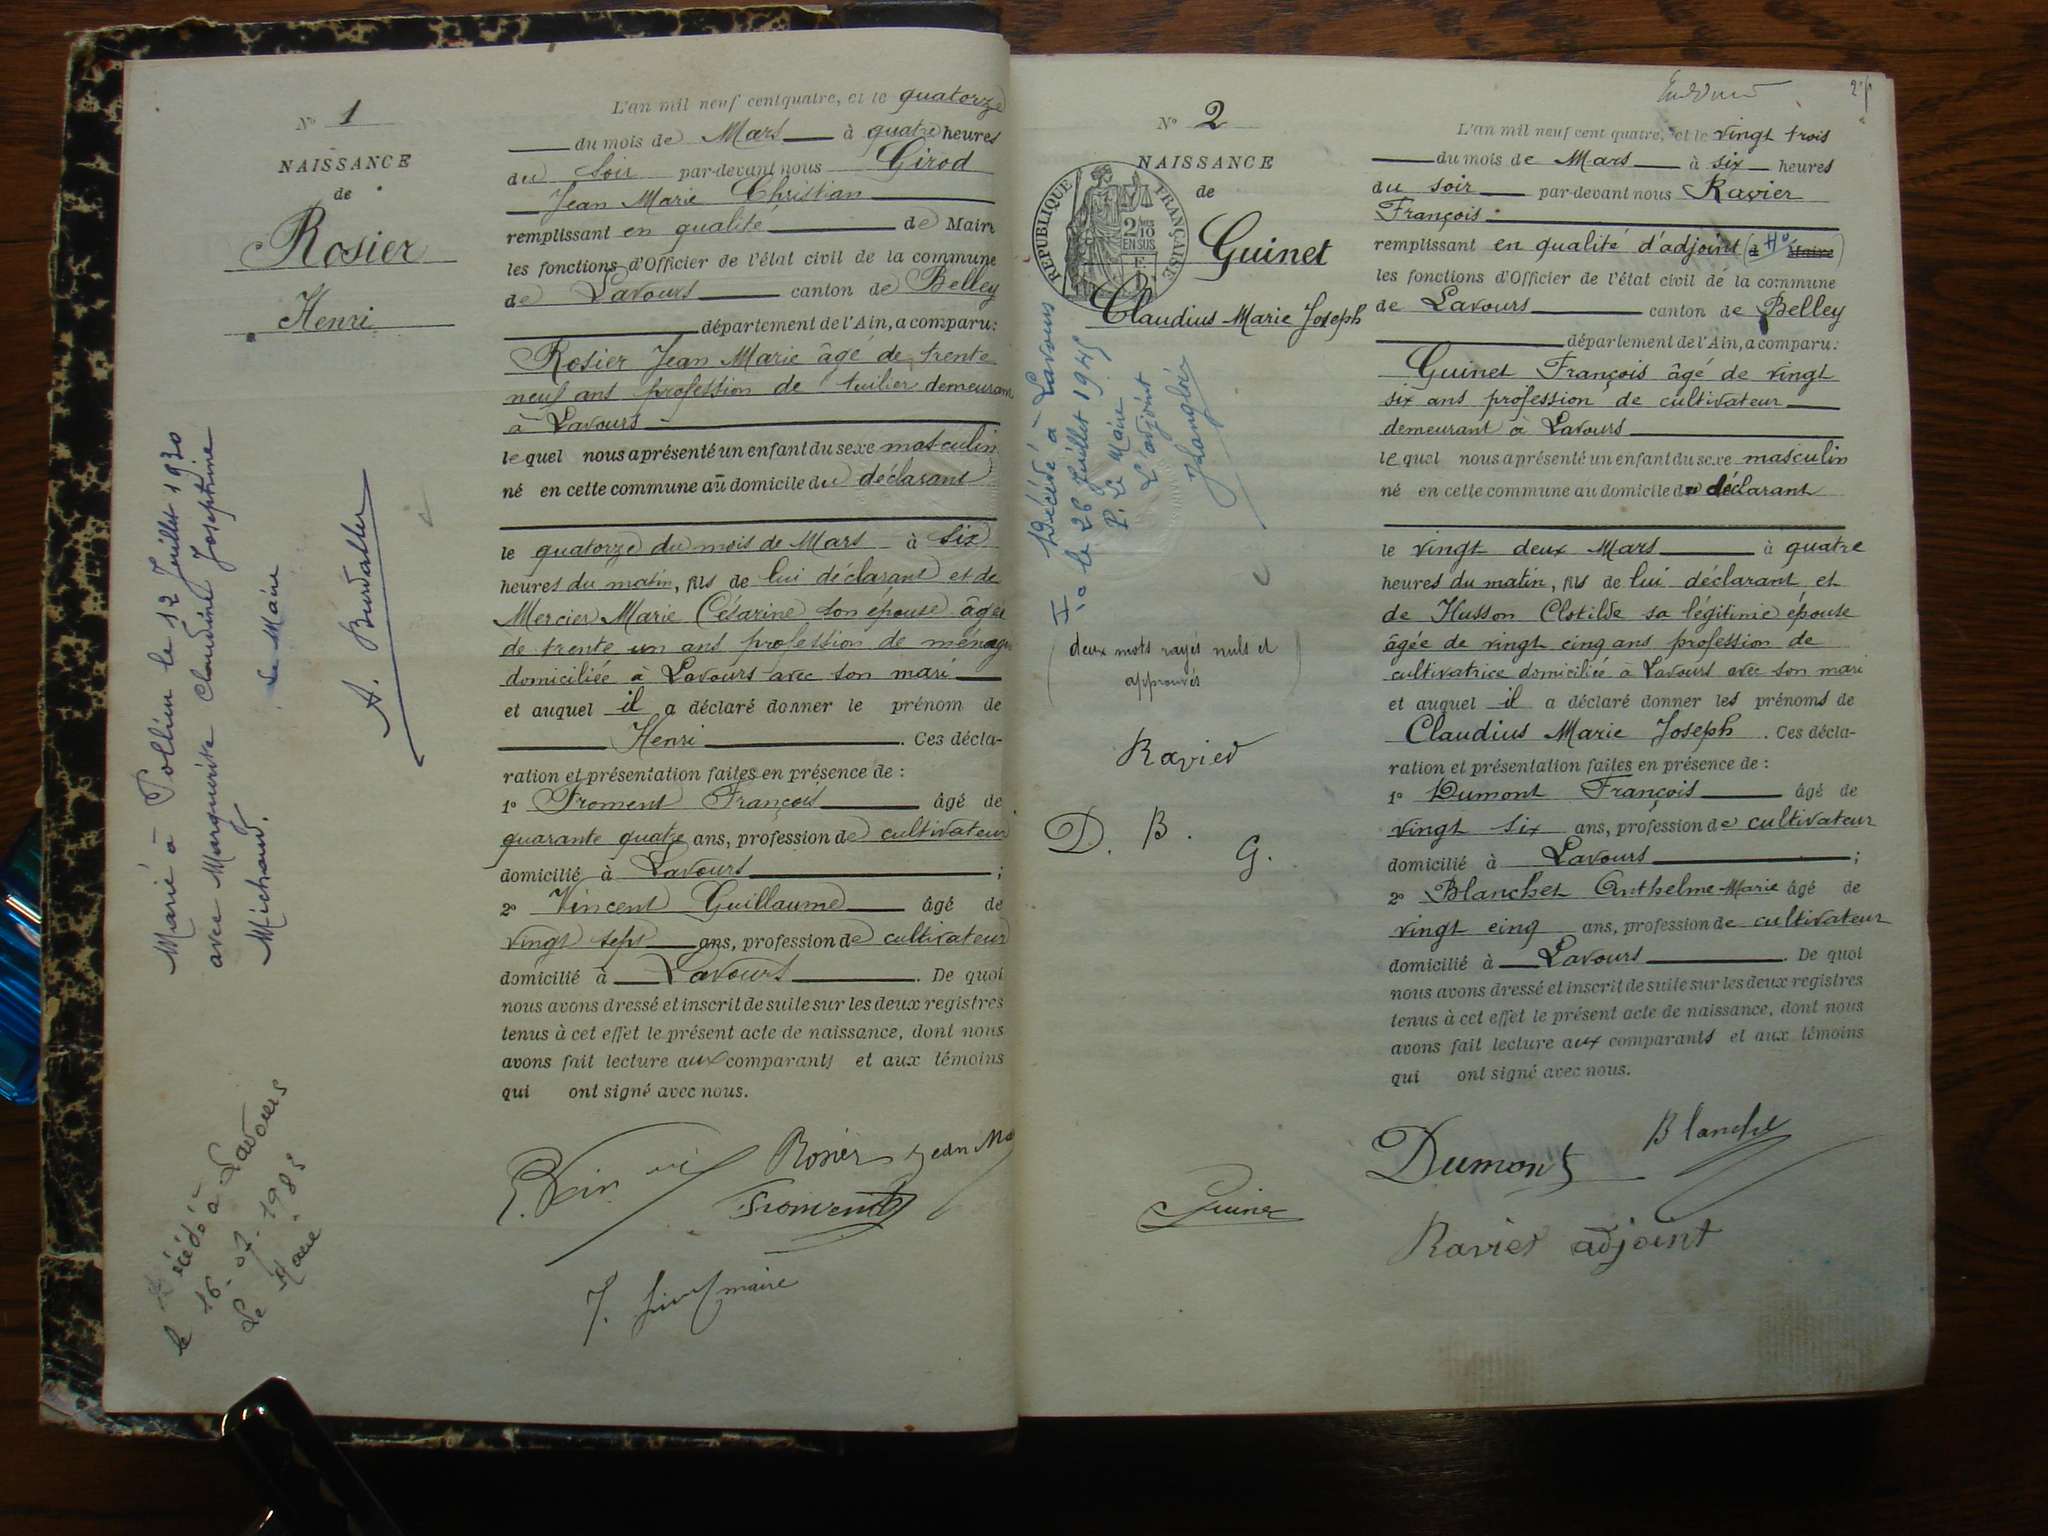 N° 1
NAISSANCE
de
Rosier
Henri
Marié à Pollieu le 12 Juillet 1930
avec Marguerite Claudine Josephine
Michaud.
Le Maire
A.
Décédé à Lavours
le 16-07-1985
Le Maire
L'an mil neuf cent quatre, et le quatorze
du mois de Mars à quatre heures
du soir par-devant nous Girod
Jean Marie Christian
remplissant en qualité de Maire
les fonctions d'Officier de l'état civil de la commune
de Lavours canton de Belley
département de l'Ain, a comparu:
Rosier Jean Marie âgé de trente
neuf ans profession de tuilier demeurant
à Lavours
lequel nous a présenté un enfant du sexe masculin
né en cette commune au domicile du déclarant
le quatorze du mois de Mars à six
heures du matin, fils de lui déclarant et de
Mercier Marie Césarine son épouse âgée
de trente un ans profession de ménagère
domiciliée à Lavours avec son mari
et auquel il a déclaré donner le prénom de
Henri. Ces décla-
ration et présentation faites en présence de :
1° Froment François âgé de
quarante quatre ans, profession de cultivateur
domicilié à Lavours ;
2° Vincent Guillaume âgé de
vingt sept ans, profession de cultivateur
domicilié à Lavours. De quoi
nous avons dressé et inscrit de suite sur les deux registres
tenus à cet effet le présent acte de naissance, dont nous
avons fait lecture aux comparants et aux témoins
qui ont signé avec nous.
Rosier Jean Mie
Froment
maire
N° 2
NAISSANCE
de
RÉPUBLIQUE FRANÇAISE
2/10
EN SUS
Guinet
Claudius Marie Joseph
Décédé à Lavours
le 26 Juillet 1945
P. Le Maire
L'adjoint
deux mots rayés nuls et
approuvés
Ravier
D. B.
G.
L'an mil neuf cent quatre, et le vingt trois
du mois de Mars à six heures
du soir par-devant nous Ravier
François
remplissant en qualité d'adjoint (d Maire)
les fonctions d'Officier de l'état civil de la commune
de Lavours canton de Belley
département de l'Ain, a comparu:
Guinet François âgé de vingt
six ans profession de cultivateur
demeurant à Lavours
lequel nous a présenté un enfant du sexe masculin
né en cette commune au domicile du déclarant
le vingt deux Mars à quatre
heures du matin, fils de lui déclarant et
de Husson Clotilde sa légitime épouse
âgée de vingt cinq ans profession de
cultivatrice domiciliée à Lavours avec son mari
et auquel il a déclaré donner les prénoms de
Claudius Marie Joseph. Ces décla-
ration et présentation faites en présence de :
1° Dumont François âgé de
vingt six ans, profession de cultivateur
domicilié à Lavours ;
2° Blanchet Anthelme-Marie âgé de
vingt cinq ans, profession de cultivateur
domicilié à Lavours. De quoi
nous avons dressé et inscrit de suite sur les deux registres
tenus à cet effet le présent acte de naissance, dont nous
avons fait lecture aux comparants et aux témoins
qui ont signé avec nous.
Dumont Blanchet
Guinet
Ravier adjoint